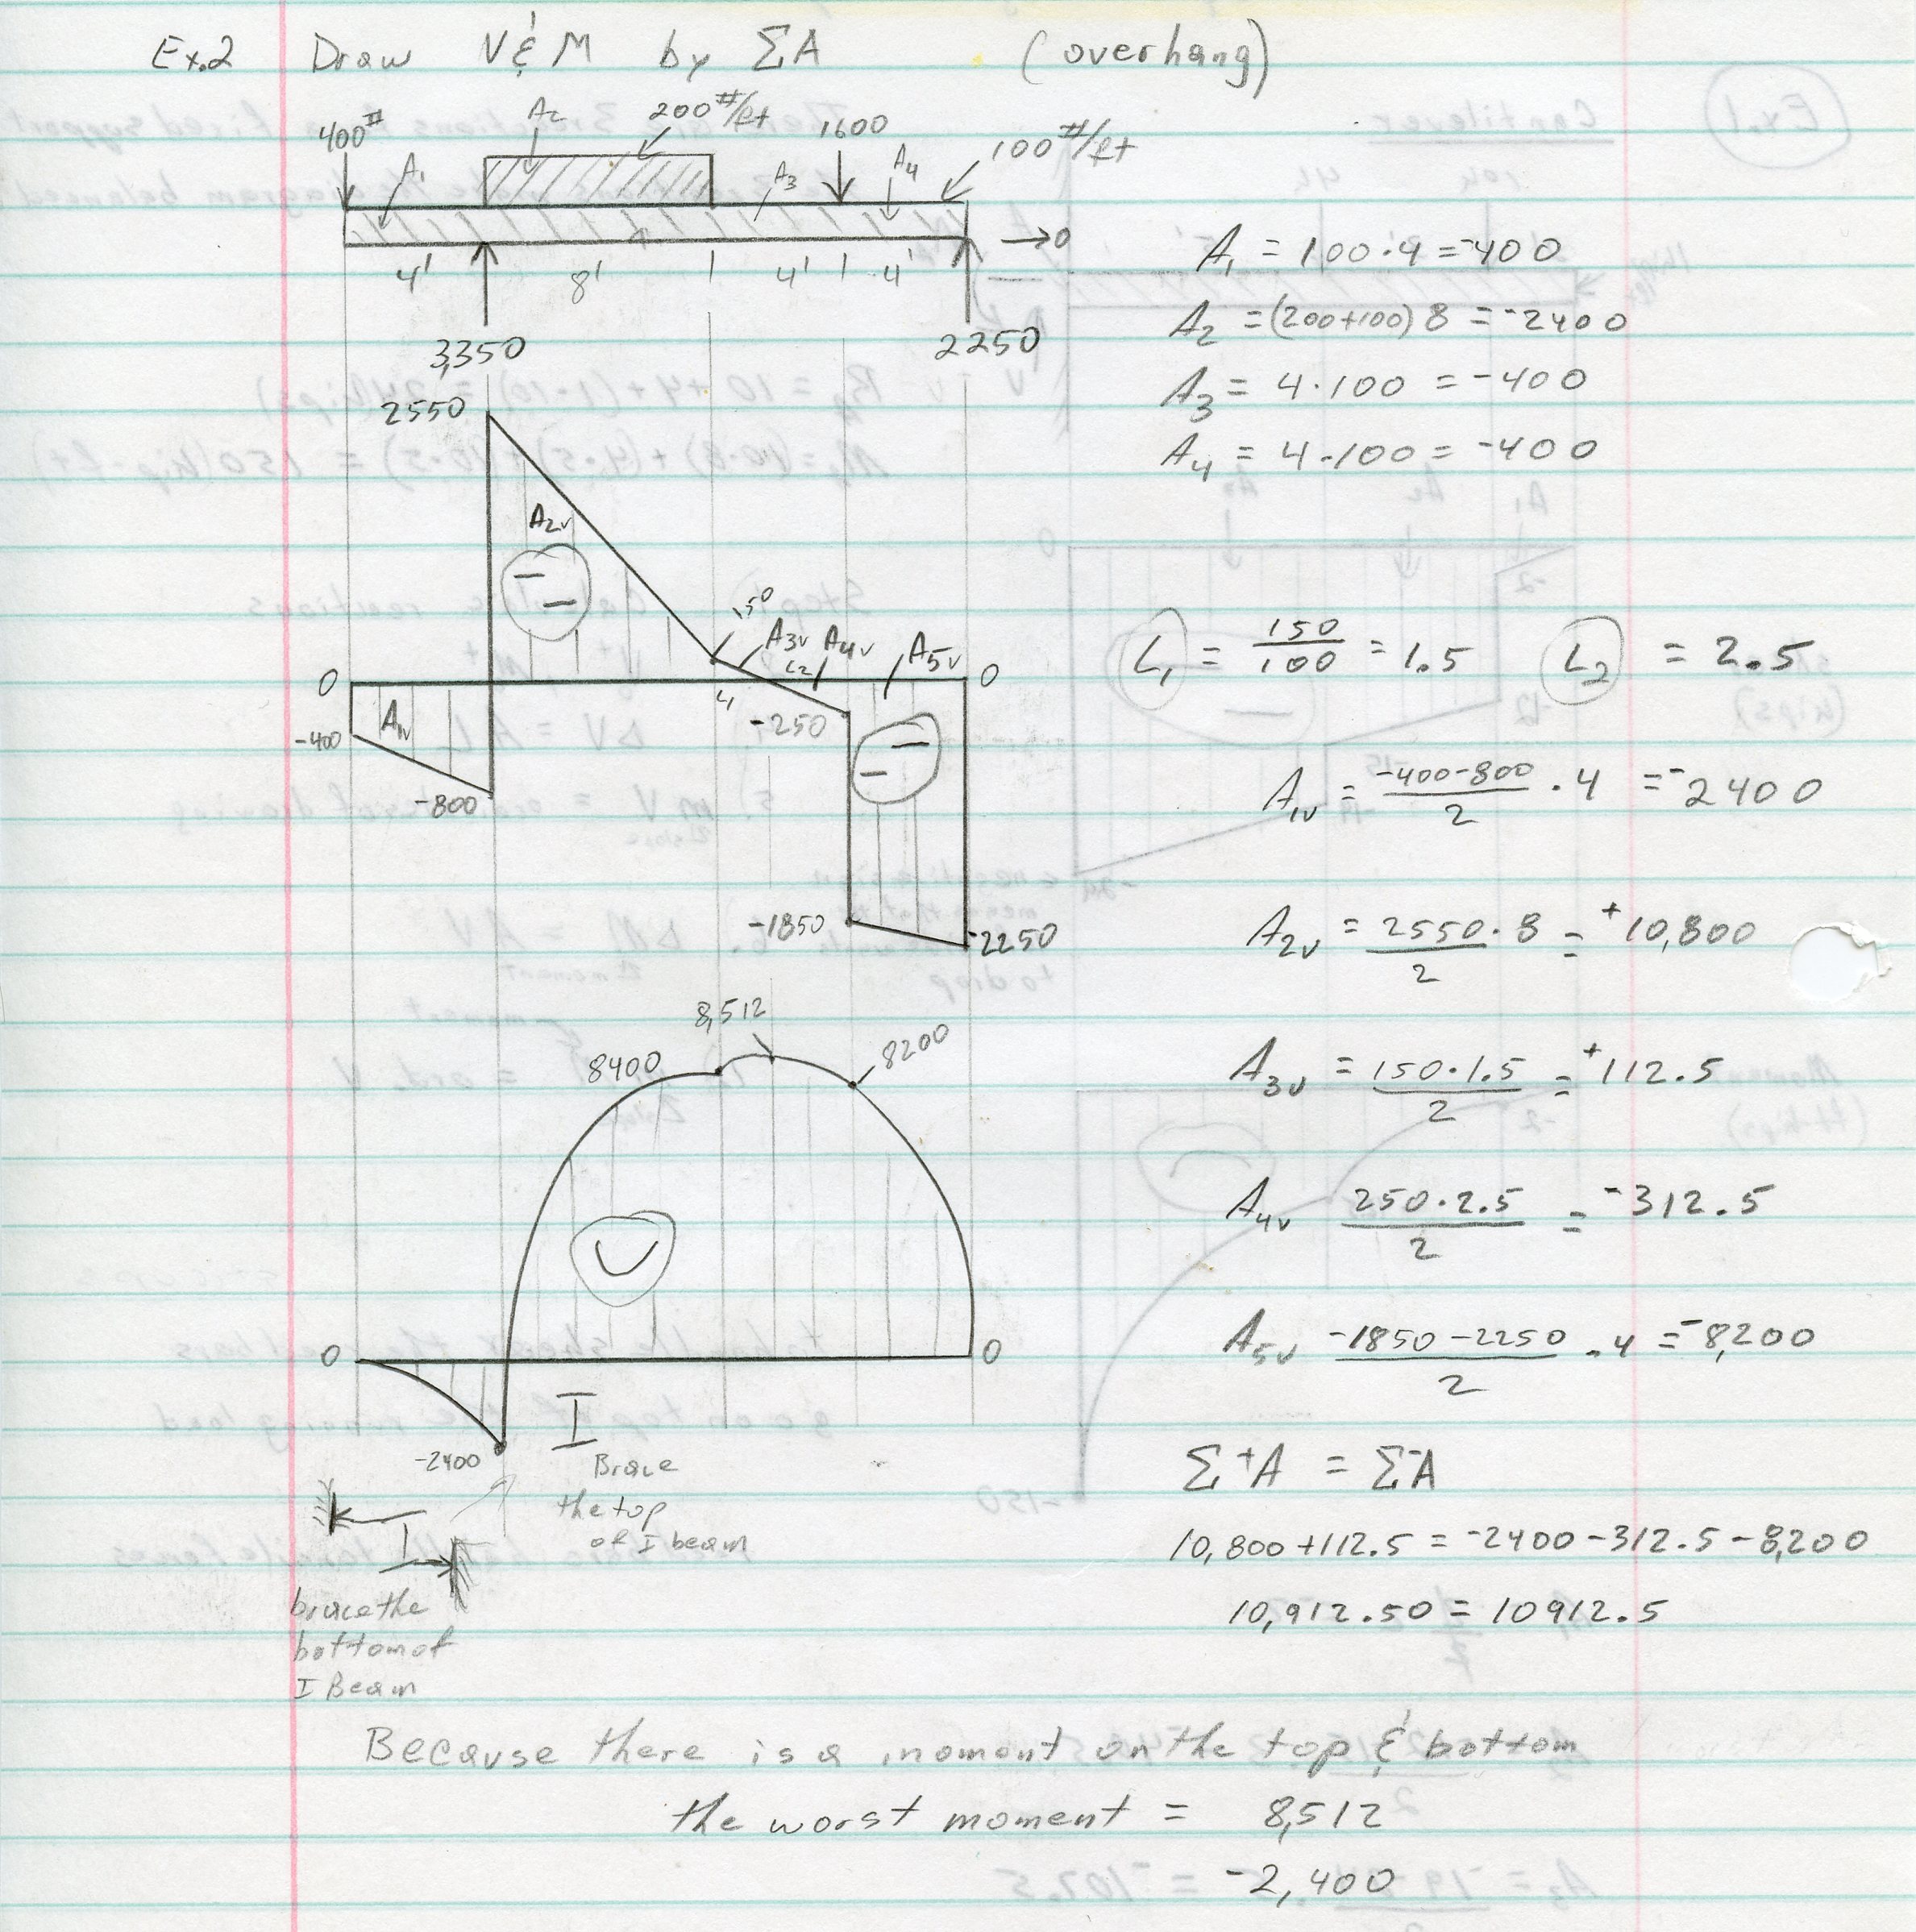 Ex.2 Draw V & M by ΣA (overhang)
400# A2 200#/ft 1600 100#/ft
A1 A3 A4
→0
4' 8' 4' 4'
3,350 2250
A1 = 100·4 = -400
A2 = (200+100) 8 = -2400
A3 = 4·100 = -400
A4 = 4·100 = -400
2550
A2v
150
A3v A4v A5v
0 L1 L2 0
A1v
-400 -250
-800
-1850
-2250
L1 = 150/100 = 1.5 L2 = 2.5
A1v = (-400-800)/2 · 4 = -2400
A2v = 2550·8/2 = +10,800
A3v = 150·1.5/2 = +112.5
A4v 250·2.5/2 = -312.5
A5v (-1850-2250)/2 · 4 = -8,200
8,512
8400 8200
0 0
-2400
I
Brace
the top
of I beam
I
brace the
bottom of
I Beam
Σ+A = Σ-A
10,800+112.5 = -2400-312.5-8,200
10,912.50 = 10912.5
Because there is a moment on the top & bottom
the worst moment = 8,512
-2,400